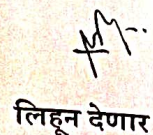 लिहून देणार